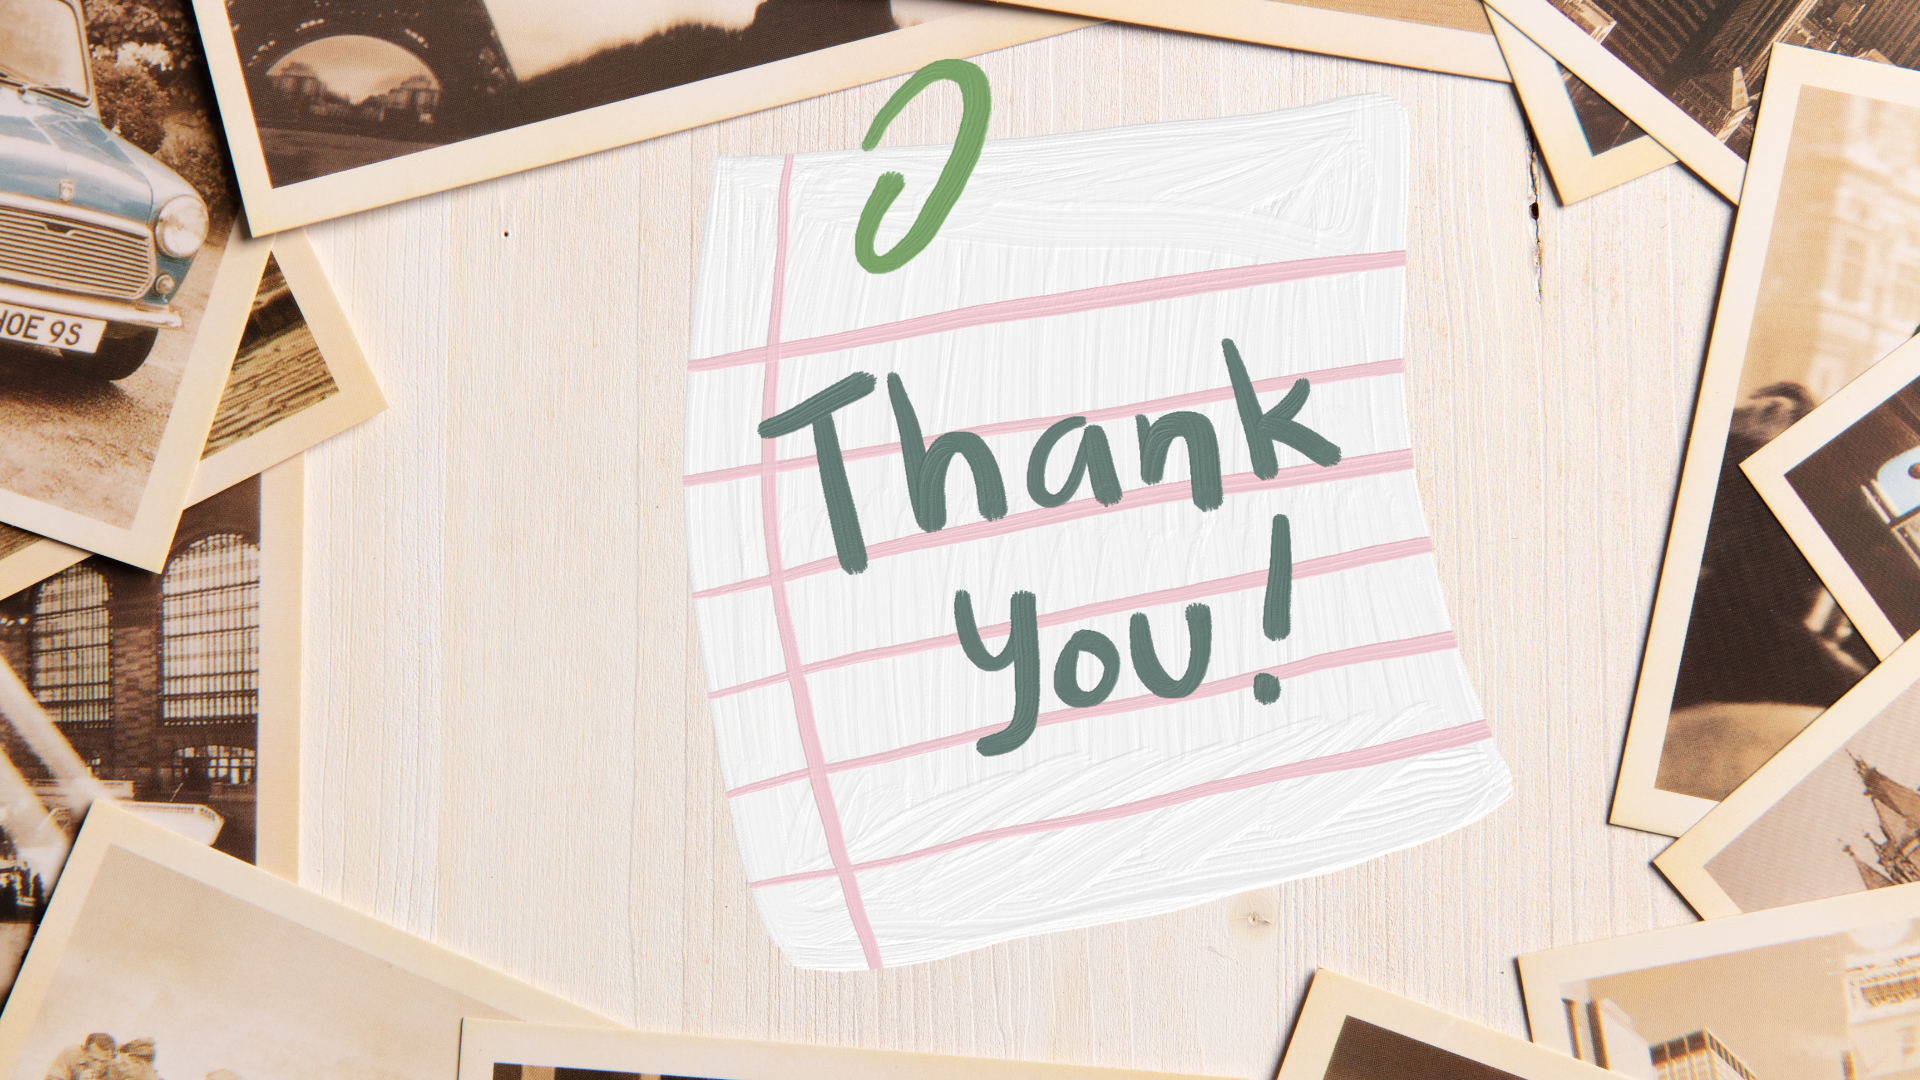 HOE 9S
Thank
you!